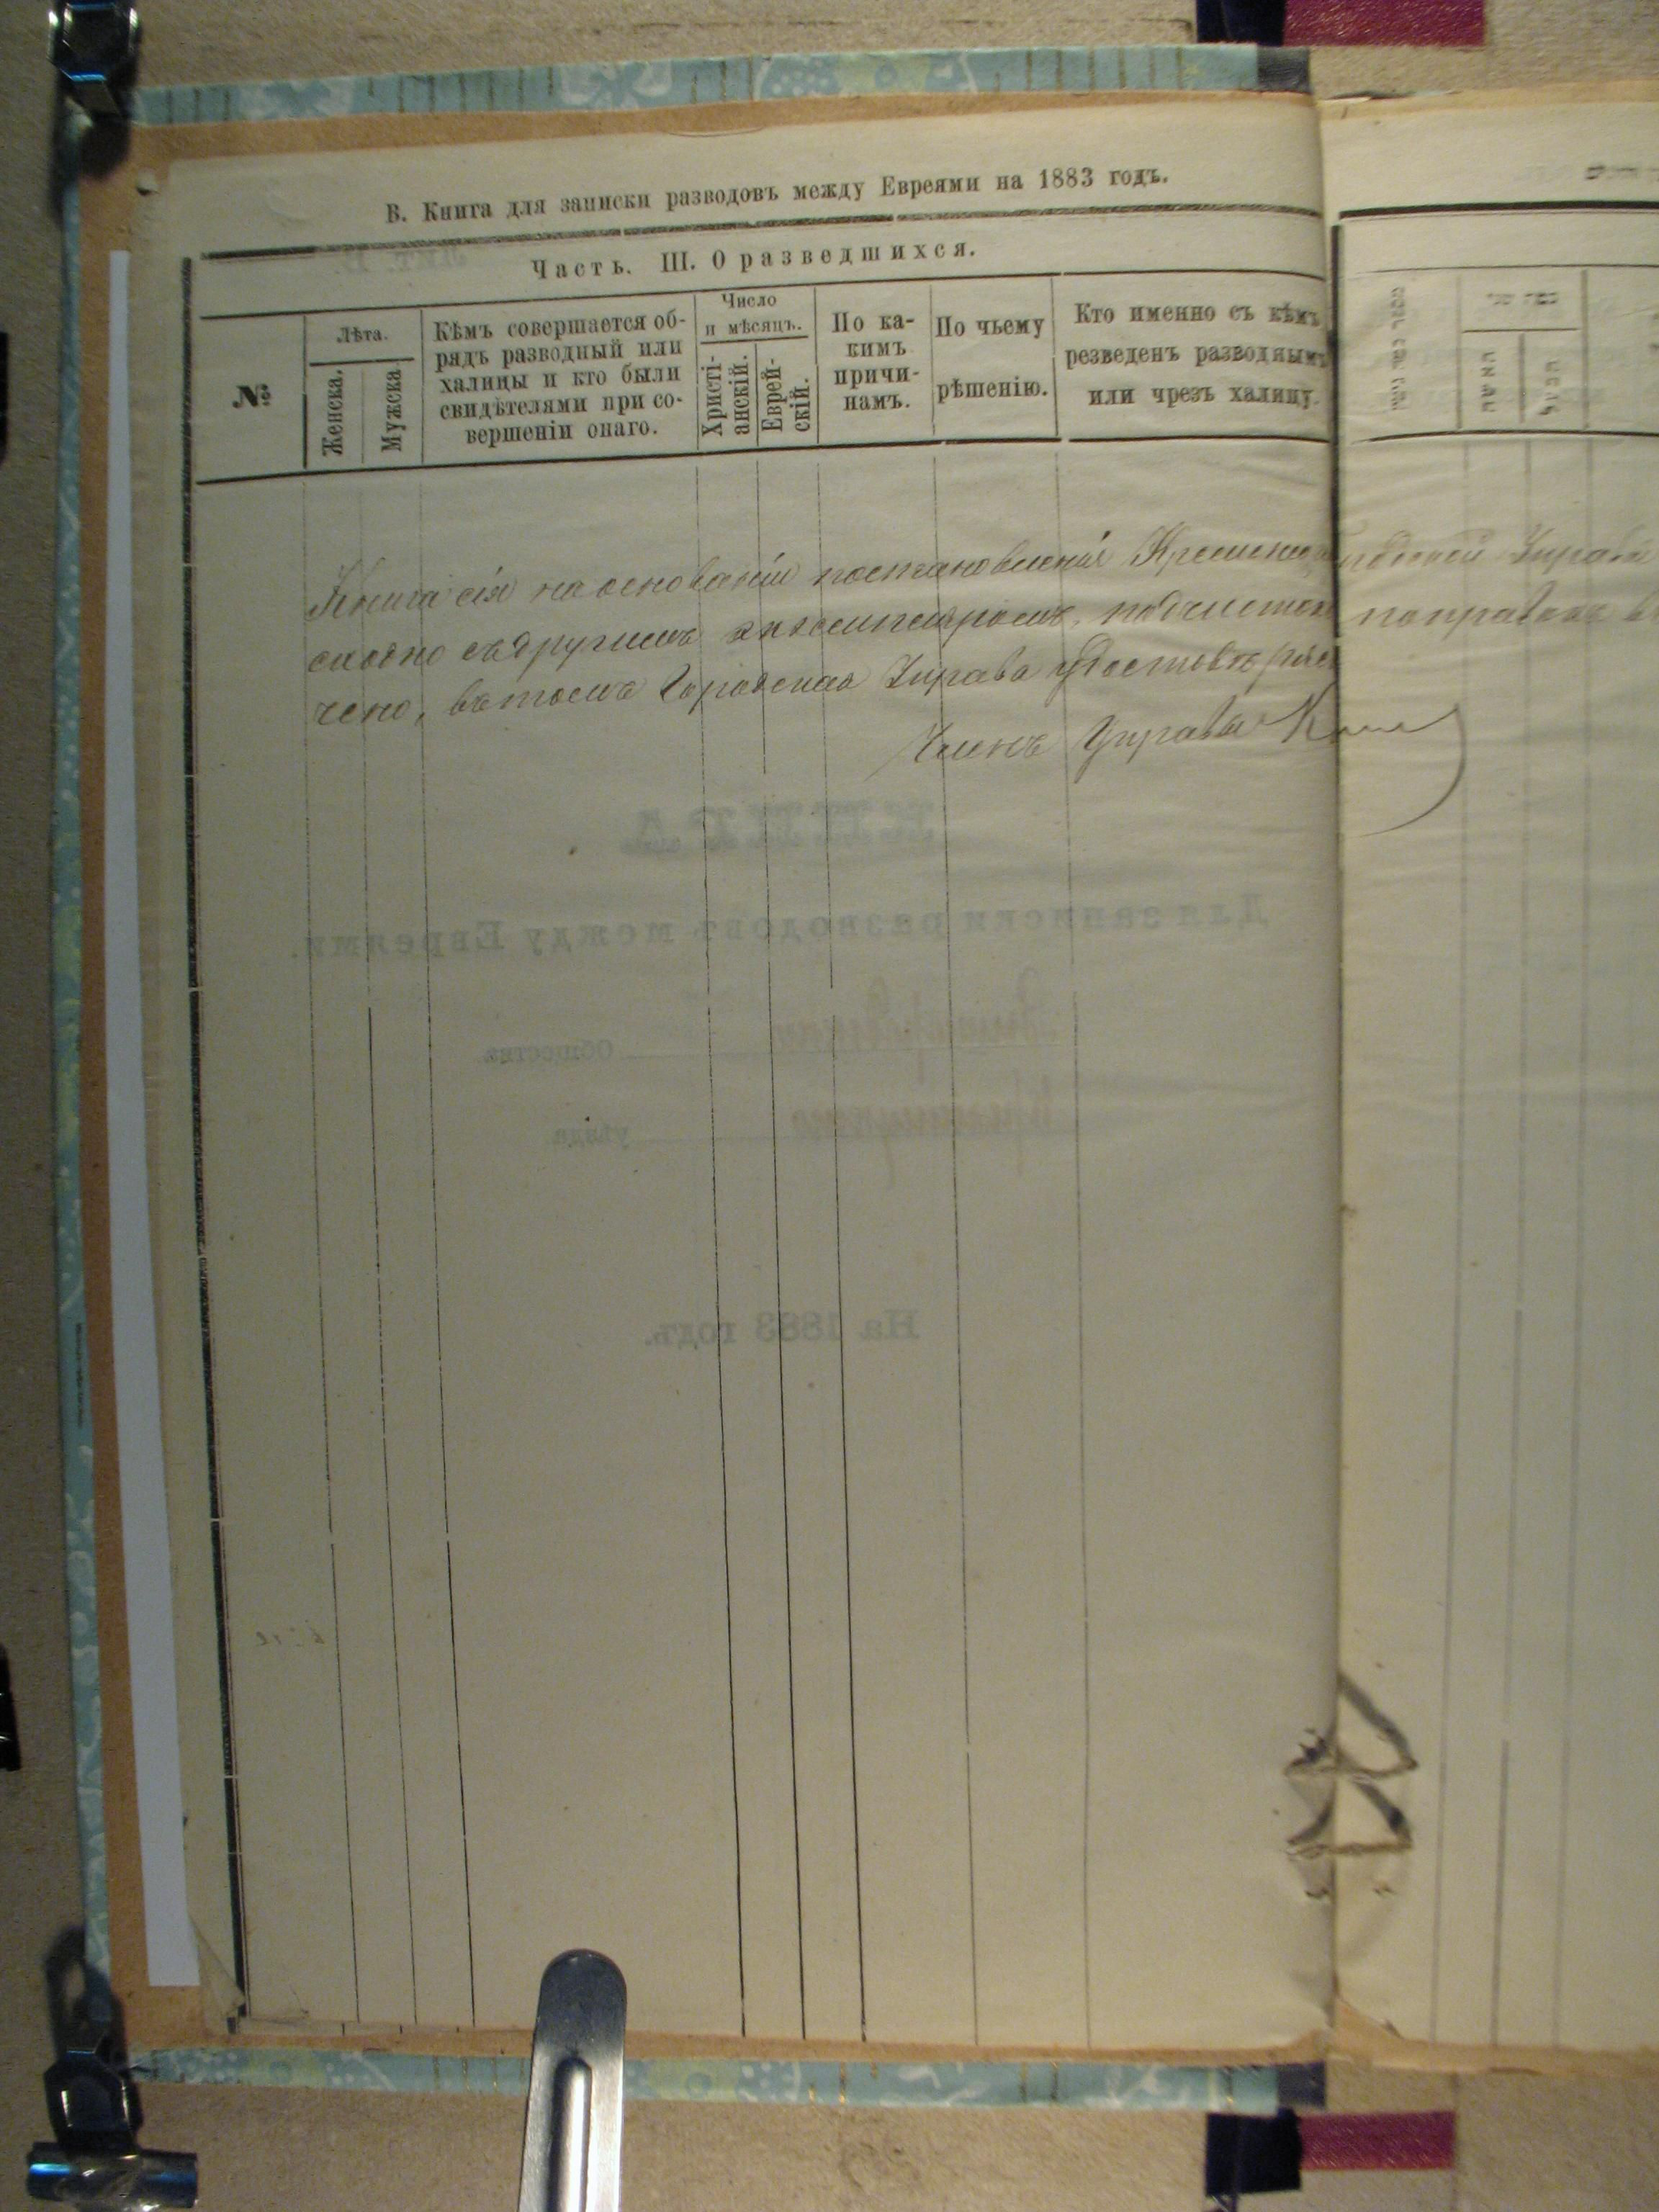 В. Книга для записки разводовъ между Евреями на 1883 годъ.
Часть. III. О разведшихся.
№
Лѣта.
Женска.
Мужска
Кѣмъ совершается об-
рядъ разводный или
халицы и кто были
свидѣтелями при со-
вершеніи онаго.
Число
и мѣсяцъ.
Христі-
анскій.
Еврей-
скій.
По ка-
кимъ
причи-
намъ.
По чьему
рѣшенію.
Кто именно съ кѣмъ
резведенъ разводнымъ
или чрезъ халицу.
Книга сія на основаніи постановленія Управы
сходно съ другимъ экземпляромъ, подчистокъ поправокъ
чено, въ томъ Городская Управа
Членъ Управы
КНИГА
Для записки разводовъ между Евреями.
Общества
уѣзда
На 1883 годъ.